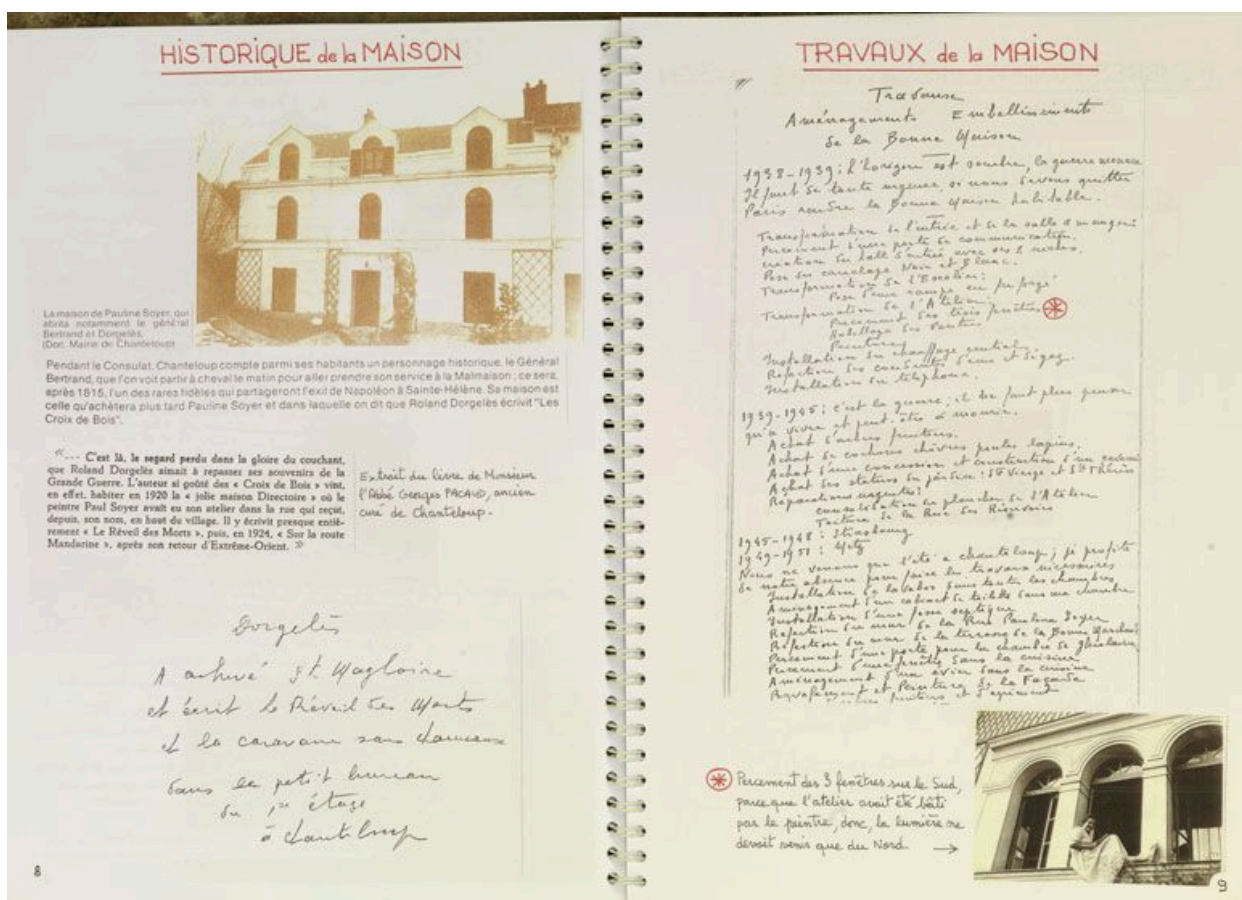 HISTORIQUE de la MAISON
La maison de Pauline Soyer, qui
abrita notamment le général
Bertrand et Dorgelès.
(Doc. Mairie de Chanteloup)
Pendant le Consulat, Chanteloup compte parmi ses habitants un personnage historique, le Général
Bertrand, que l'on voit partir à cheval le matin pour aller prendre son service à la Malmaison ; ce sera,
après 1815, l'un des rares fidèles qui partageront l'exil de Napoléon à Sainte-Hélène. Sa maison est
celle qu'achètera plus tard Pauline Soyer et dans laquelle on dit que Roland Dorgelès écrivit "Les
Croix de Bois".
«... C'est là, le regard perdu dans la gloire du couchant,
que Roland Dorgelès aimait à repasser ses souvenirs de la
Grande Guerre. L'auteur si goûté des « Croix de Bois » vint,
en effet, habiter en 1920 la « jolie maison Directoire » où le
peintre Paul Soyer avait eu son atelier dans la rue qui reçut,
depuis, son nom, en haut du village. Il y écrivit presque entiè-
rement « Le Réveil des Morts », puis, en 1924, « Sur la route
Mandarine », après son retour d'Extrême-Orient. »
Extrait du livre de Monsieur
l'Abbé Georges PACAUD, ancien
curé de Chanteloup.
Dorgelès
A achevé St Magloire
et écrit le Réveil des Morts
et la caravane sans chameaux
dans le petit bureau
du 1er étage
à Chanteloup
8
TRAVAUX de la MAISON
Travaux
Aménagements Embellissements
de la Bonne Maison
1938-1939 : l'horizon est sombre, la guerre menace
Il faut de toute urgence, si nous devons quitter
Paris rendre la Bonne Maison habitable.
Transformation de l'entrée et de la salle à manger
Percement d'une porte de communication.
Création du hall d'entrée avec ses 2 niches.
Pose du carrelage Noir et Blanc.
Transformation de l'Escalier :
Pose d'une rampe en fer forgé
Transformation de l'Atelier :
Percement des trois fenêtres
Habillage des
Peintures
Installation du chauffage central
Réfection des conduits d'eau et de gaz.
Installation du téléphone.
1939-1945 : c'est la guerre ; il ne faut plus penser
qu'à vivre et peut-être à mourir.
Achat d'arbres fruitiers.
Achat de cochons chèvres poules lapins.
Achat d'une concession et construction d'un caveau
Achat des statues du jardin : Ste Vierge et Ste Thérèse
Réparations urgentes :
consolidation du plancher de l'Atelier
Toiture de la Rue des Réservoirs
1945-1948 : Strasbourg
1949-1951 : Metz
Nous ne venons que l'été à Chanteloup ; je profite
de notre absence pour faire les travaux nécessaires
Installation de lavabos dans toutes les chambres
Aménagement d'un cabinet de toilette dans ma chambre
Installation d'une fosse septique
Réfection du mur de la Rue Pauline Soyer
Réfection du mur de la terrasse de la Bonne
Percement d'une porte pour la chambre de Ghislaine
Percement d'une fenêtre dans la cuisine
Aménagement d'un évier dans la cuisine
Ravalement et Peinture de la Façade
fruitiers et d'agrément
Percement des 3 fenêtres sur le Sud,
parce que l'atelier avait été bâti
par le peintre, donc, la lumière ne
devait venir que du Nord →
9